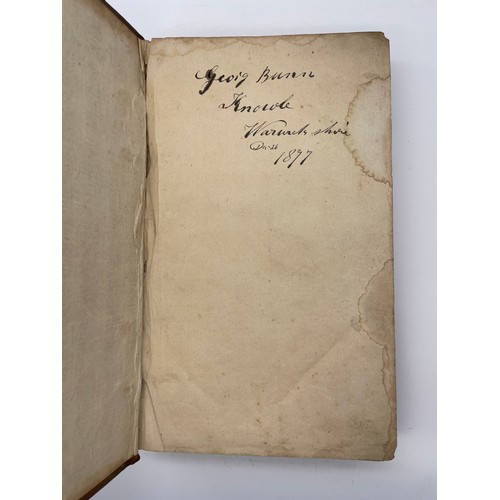 Georg Bunn
Knowle
Warwick shire
1877